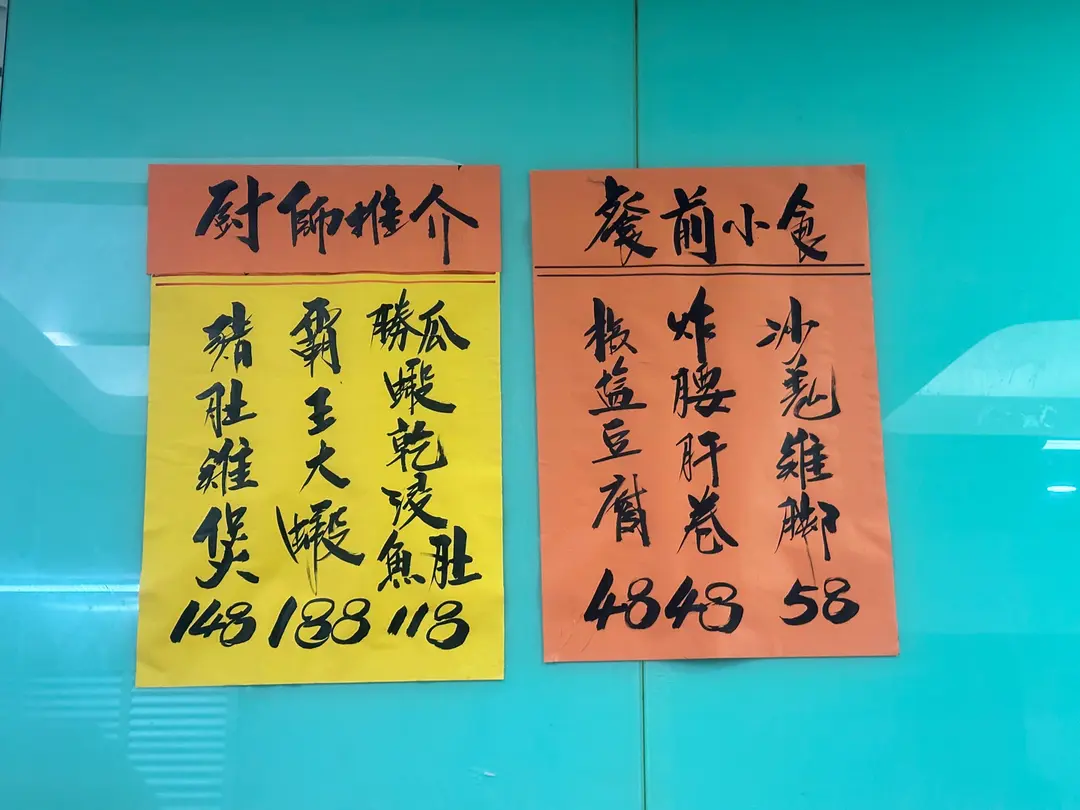 厨師推介
勝瓜蝦乾浸魚肚
118
霸王大蝦
188
豬肚雞煲
148
餐前小食
沙羗雞脚
58
炸腰肝卷
48
椒塩豆腐
48